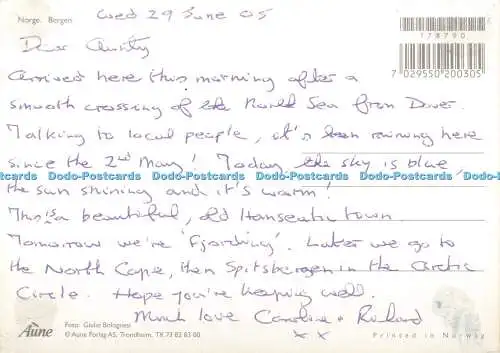 Norge. Bergen
Wed 29 June 05
178790
Dear Christy
7 029550 200305
Arrived here this morning after a
smooth crossing of the North Sea from Dover.
Talking to local people, it's been raining here
since the 2nd May! Today the sky is blue,
Dodo-Postcards Dodo-Postcards Dodo-Postcards Dodo-Postcards Dodo-Postcards Dodo-Postcards
the sun shining and it's warm!
This is a beautiful, old Hanseatic town.
Tomorrow we're 'fjording'. Later we go to
the North Cape, then Spitsbergen in the Arctic
Circle. Hope you're keeping well.
Much love Caroline + Richard
x x
Aune
Foto: Giulio Bolognesi
© Aune Forlag AS, Trondheim, Tlf. 73 82 83 00
Printed in Norway